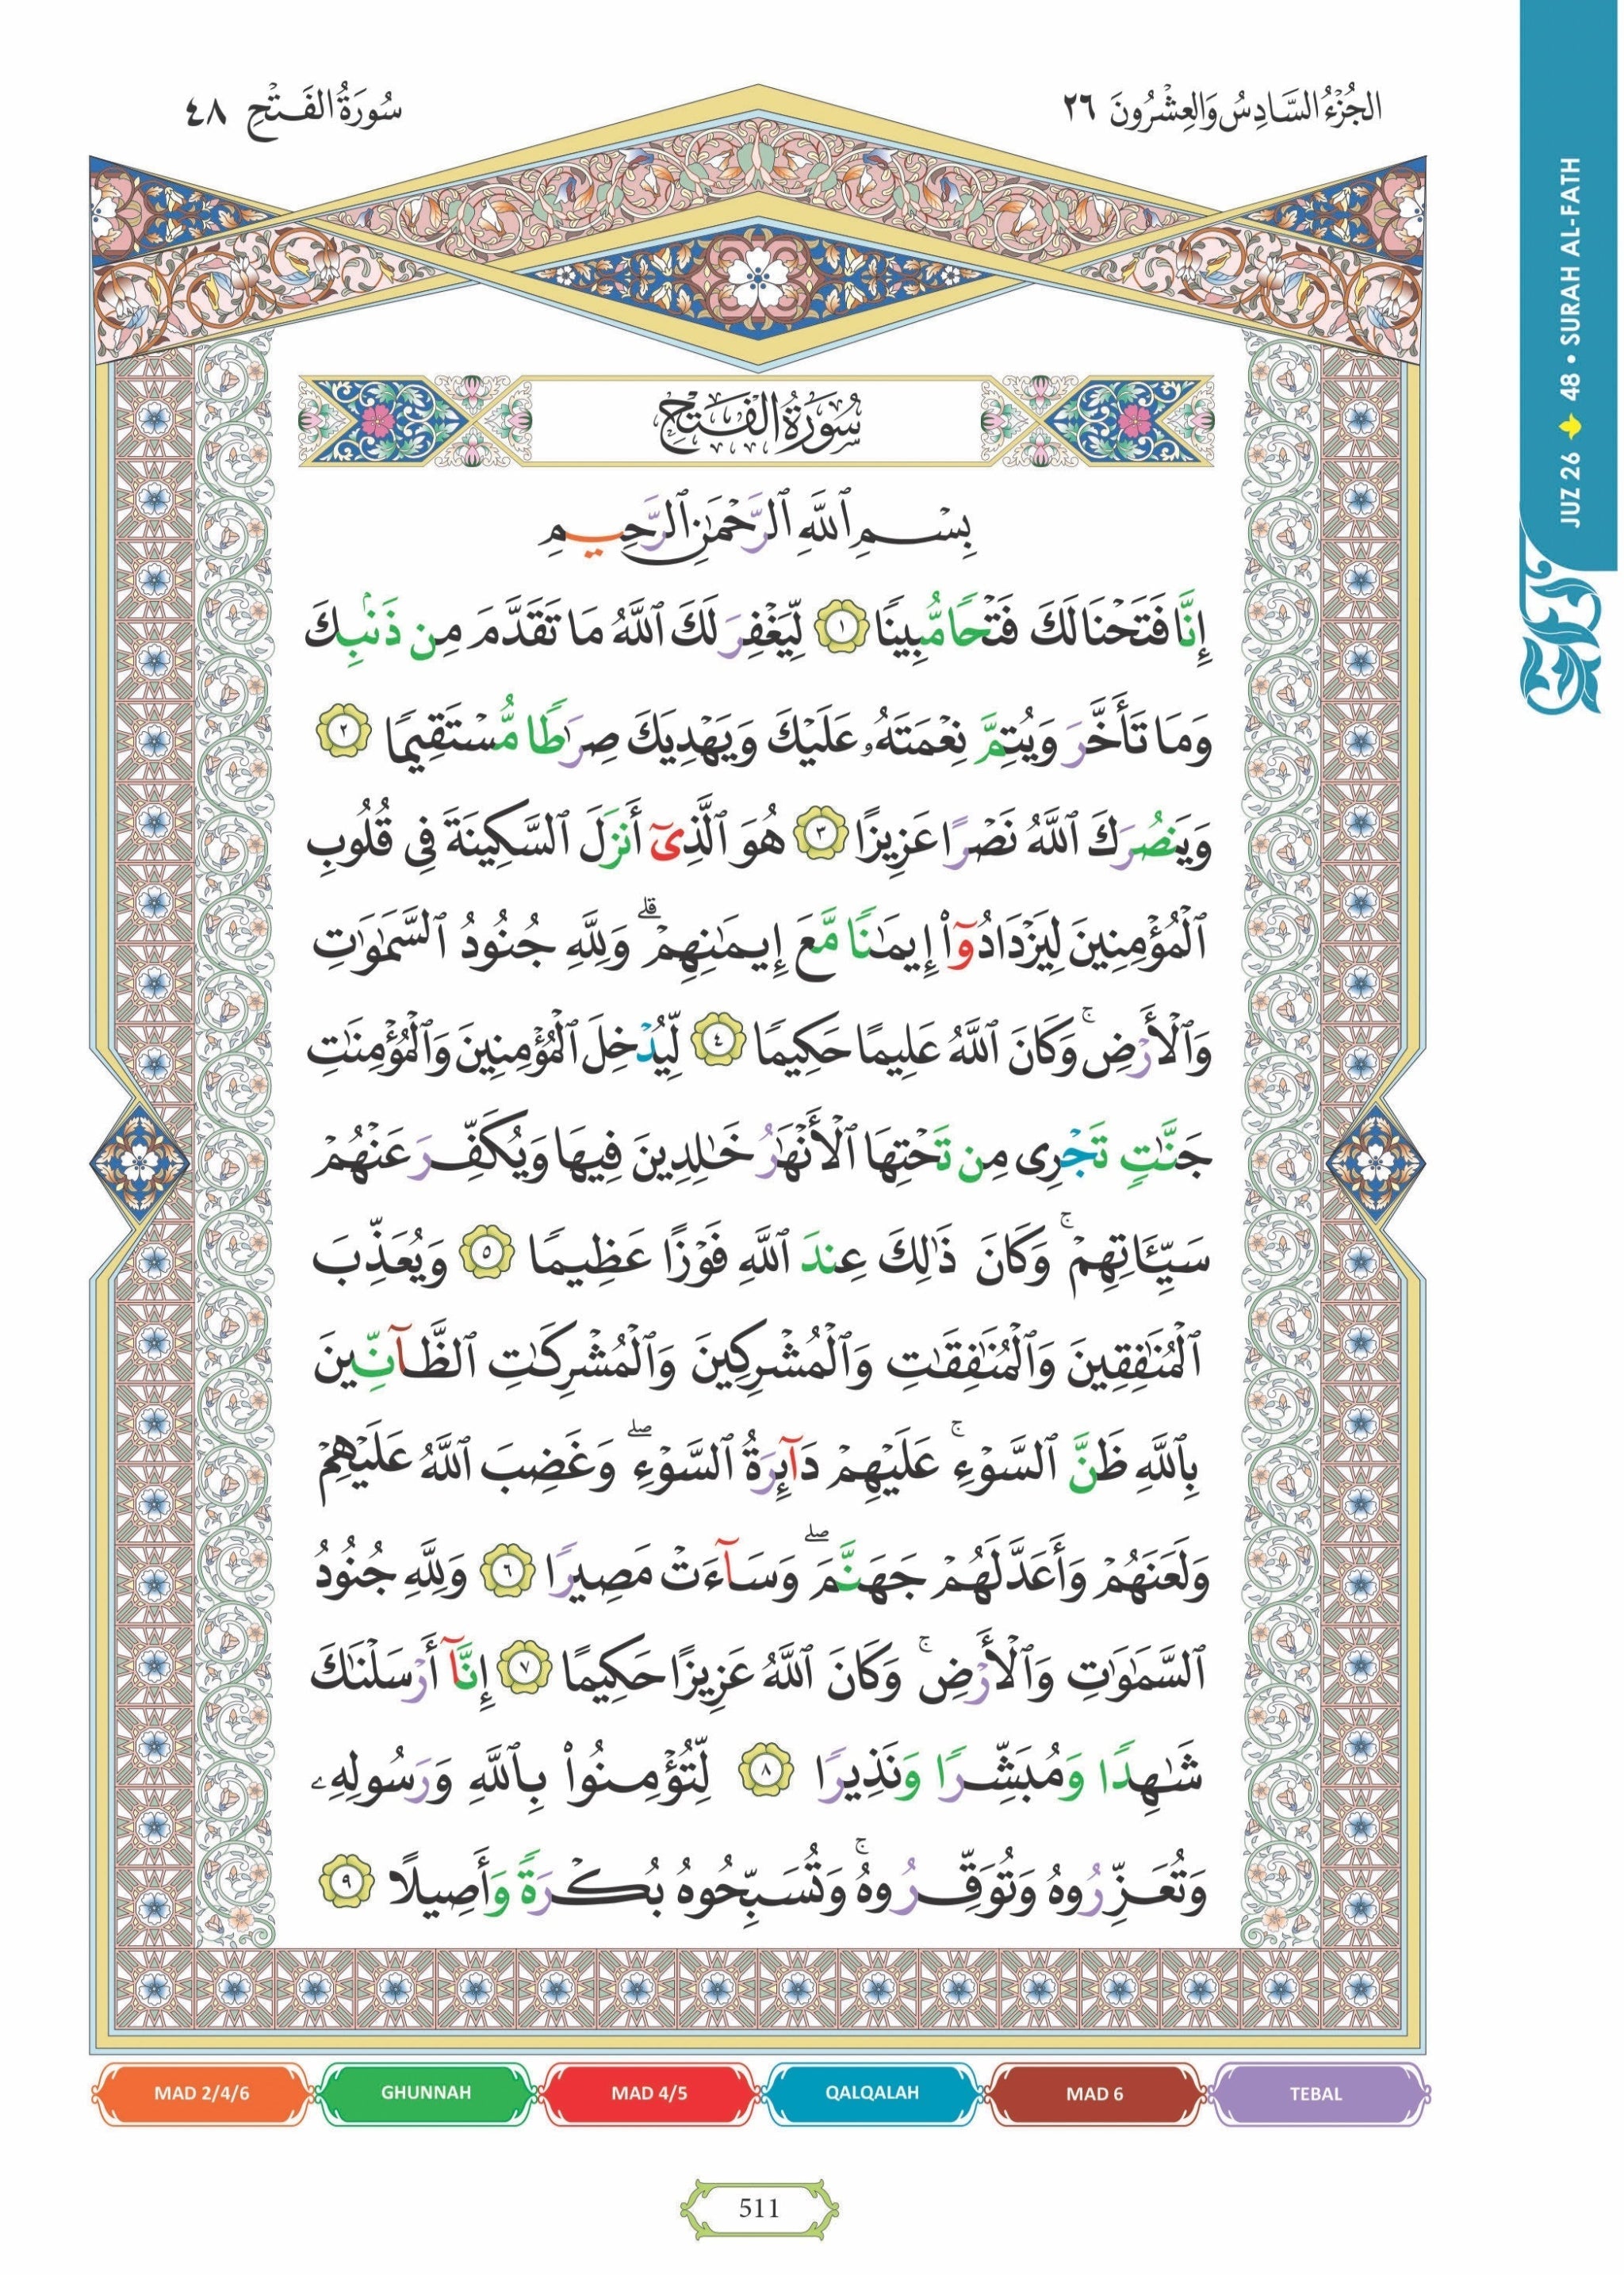 الجُزْءُ السَّادِسُ وَالعِشْرُونَ ٢٦
سُورَةُ الفَتْحِ ٤٨
JUZ 26 48 • SURAH AL-FATH
سُورَةُ الفَتْحِ
بِسْمِ ٱللَّهِ ٱلرَّحْمَٰنِ ٱلرَّحِيمِ
إِنَّا فَتَحْنَا لَكَ فَتْحًا مُّبِينًا ١ لِّيَغْفِرَ لَكَ ٱللَّهُ مَا تَقَدَّمَ مِن ذَنۢبِكَ
وَمَا تَأَخَّرَ وَيُتِمَّ نِعْمَتَهُۥ عَلَيْكَ وَيَهْدِيَكَ صِرَٰطًا مُّسْتَقِيمًا ٢
وَيَنصُرَكَ ٱللَّهُ نَصْرًا عَزِيزًا ٣ هُوَ ٱلَّذِىٓ أَنزَلَ ٱلسَّكِينَةَ فِى قُلُوبِ
ٱلْمُؤْمِنِينَ لِيَزْدَادُوٓا۟ إِيمَٰنًا مَّعَ إِيمَٰنِهِمْ ۗ وَلِلَّهِ جُنُودُ ٱلسَّمَٰوَٰتِ
وَٱلْأَرْضِ ۚ وَكَانَ ٱللَّهُ عَلِيمًا حَكِيمًا ٤ لِّيُدْخِلَ ٱلْمُؤْمِنِينَ وَٱلْمُؤْمِنَٰتِ
جَنَّٰتٍ تَجْرِى مِن تَحْتِهَا ٱلْأَنْهَٰرُ خَٰلِدِينَ فِيهَا وَيُكَفِّرَ عَنْهُمْ
سَيِّـَٔاتِهِمْ ۚ وَكَانَ ذَٰلِكَ عِندَ ٱللَّهِ فَوْزًا عَظِيمًا ٥ وَيُعَذِّبَ
ٱلْمُنَٰفِقِينَ وَٱلْمُنَٰفِقَٰتِ وَٱلْمُشْرِكِينَ وَٱلْمُشْرِكَٰتِ ٱلظَّآنِّينَ
بِٱللَّهِ ظَنَّ ٱلسَّوْءِ ۚ عَلَيْهِمْ دَآئِرَةُ ٱلسَّوْءِ ۖ وَغَضِبَ ٱللَّهُ عَلَيْهِمْ
وَلَعَنَهُمْ وَأَعَدَّ لَهُمْ جَهَنَّمَ ۖ وَسَآءَتْ مَصِيرًا ٦ وَلِلَّهِ جُنُودُ
ٱلسَّمَٰوَٰتِ وَٱلْأَرْضِ ۚ وَكَانَ ٱللَّهُ عَزِيزًا حَكِيمًا ٧ إِنَّآ أَرْسَلْنَٰكَ
شَٰهِدًا وَمُبَشِّرًا وَنَذِيرًا ٨ لِّتُؤْمِنُوا۟ بِٱللَّهِ وَرَسُولِهِۦ
وَتُعَزِّرُوهُ وَتُوَقِّرُوهُ ۚ وَتُسَبِّحُوهُ بُكْرَةً وَأَصِيلًا ٩
MAD 2/4/6 GHUNNAH MAD 4/5 QALQALAH MAD 6 TEBAL
511